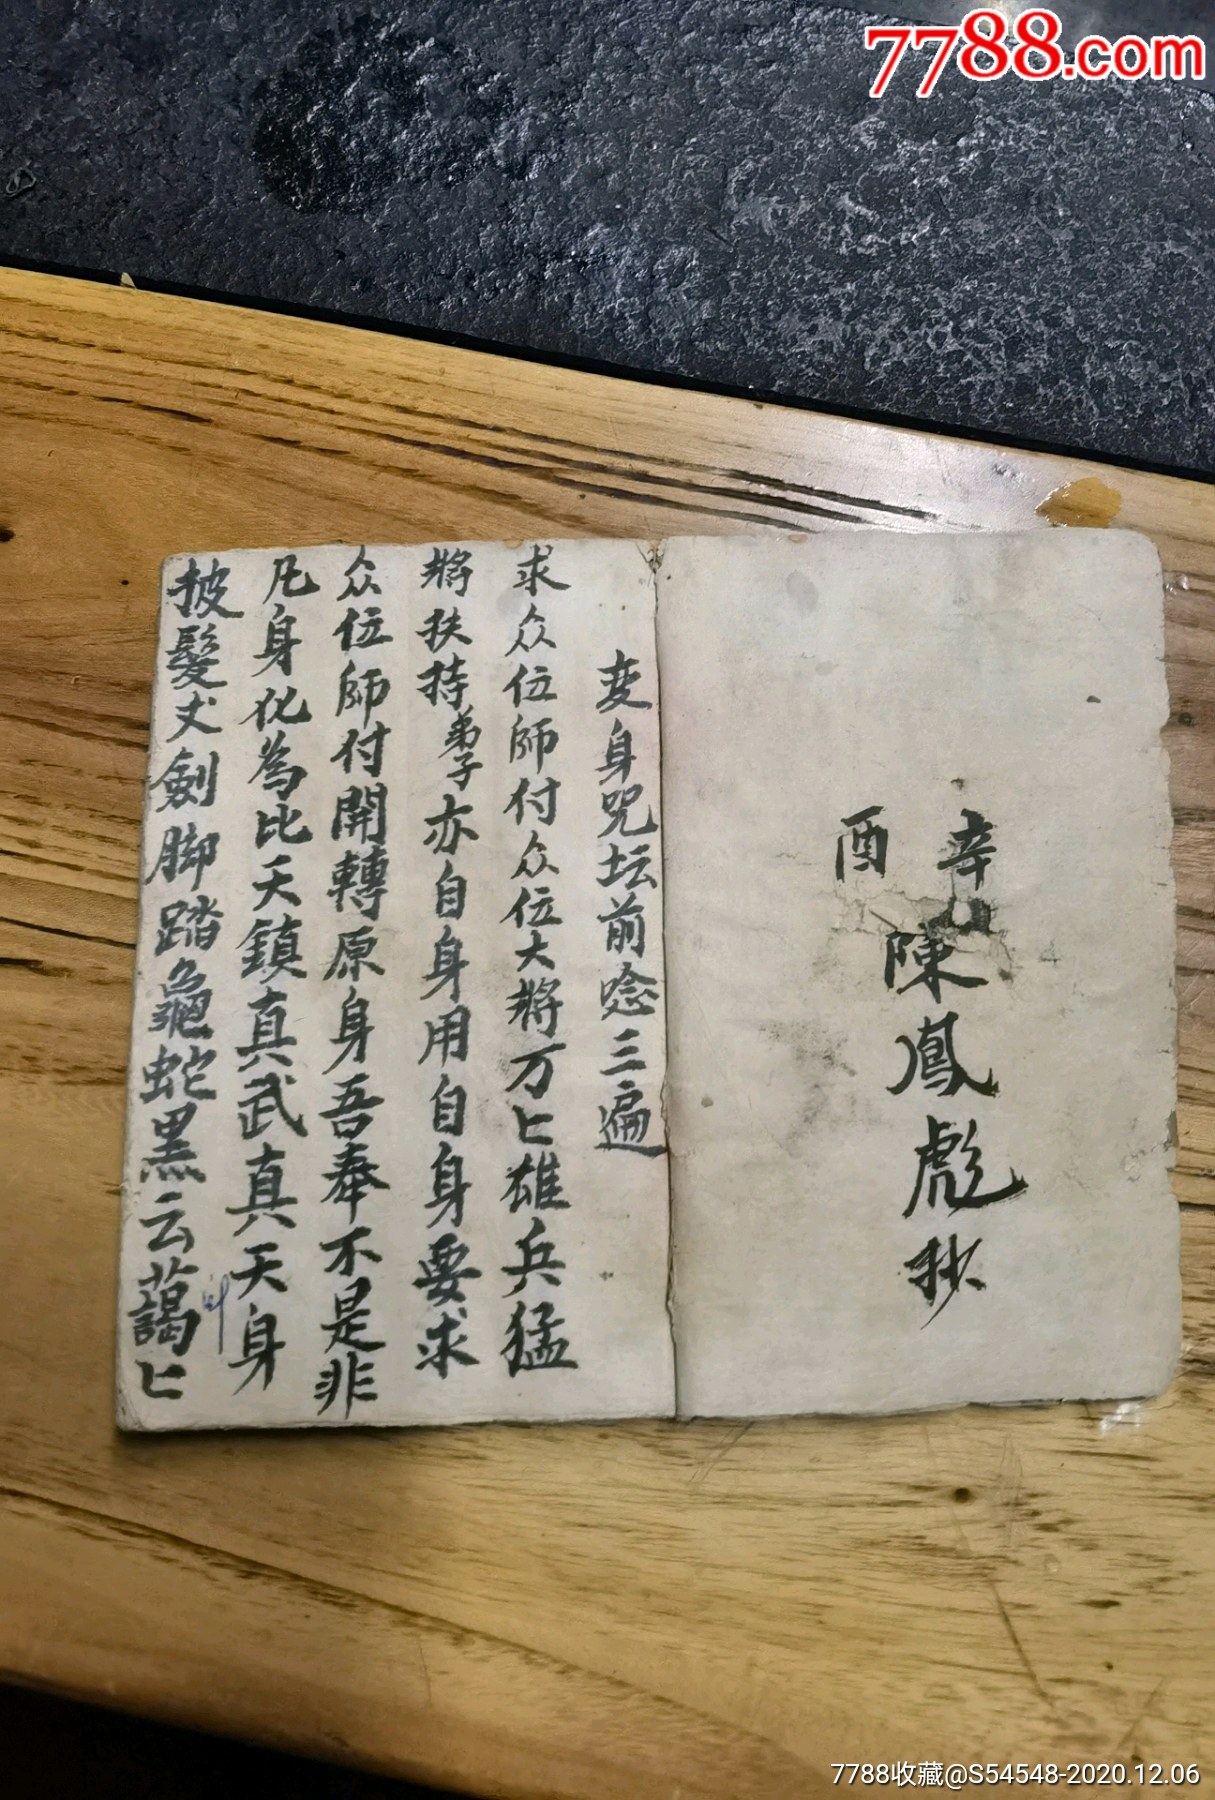 7788.com
辛酉
陳鳳彪抄
变身咒坛前唸三遍
求众位師付众位大將万匕雄兵猛
將扶持弟子亦自身用自身要求
众位師付開轉原身吾奉不是非
凡身化為比天鎮真武真天身
披髮丈劍脚踏龜蛇黑云藹匕
7788收藏@S54548-2020.12.06